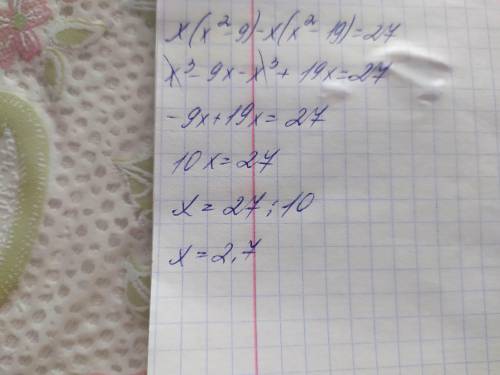 x(x²-9)-x(x²-19)=27
x³-9x-x³+19x=27
-9x+19x=27
10x=27
x=27:10
x=2,7